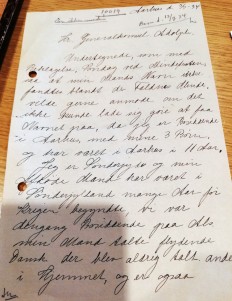 10019
Aarhus d. 5/9-34
Hr Generalkonsul Adolph.
Undertegnede, som med
Søndag ved Mindefesten
saa at min Mands Navn ikke
fandtes blandt de Faldnes Minde,
vilde gerne anmode om det
ikke kunde lade sig gøre at faa
Navnet paa, da jeg er Bosiddende
i Aarhus, med mine 3 Børn,
og har været i Aarhus i 11 Aar,
Jeg er Sønderjyde og min
Mand har været i
Sønderjylland mange Aar før
Krigen begyndte, vi var
dengang Bosiddende paa Als
min Mand talte flydende
Dansk der blev aldrig talt andet
i Hjemmet, og er ogsaa